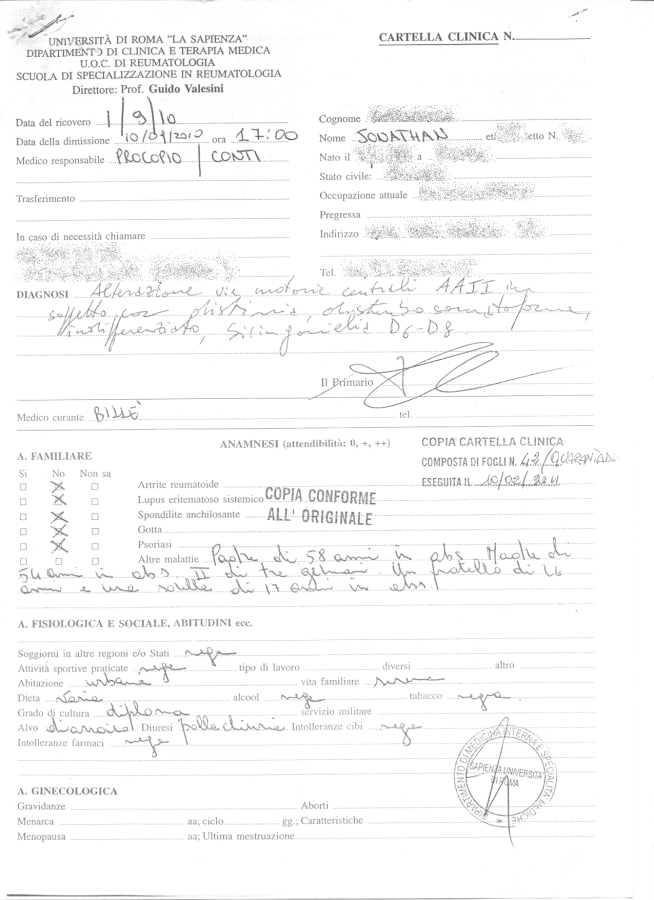 UNIVERSITÀ DI ROMA "LA SAPIENZA"
DIPARTIMENTO DI CLINICA E TERAPIA MEDICA
U.O.C. DI REUMATOLOGIA
SCUOLA DI SPECIALIZZAZIONE IN REUMATOLOGIA
Direttore: Prof. Guido Valesini
CARTELLA CLINICA N.
Data del ricovero 1/9/10
Data della dimissione 10/09/2010 ora 17:00
Medico responsabile PROCOPIO / CONTI
Trasferimento
In caso di necessità chiamare
Cognome
Nome JONATHAN et etto N.
Nato il a
Stato civile:
Occupazione attuale
Pregressa
Indirizzo
Tel.
DIAGNOSI Alterazione vie motorie centrali AAII in
soggetto con distimia, disturbo somatoforme
indifferenziato, Siringomielia D6-D8
Il Primario
Medico curante BILLÈ tel.
ANAMNESI (attendibilità: 0, +, ++)
COPIA CARTELLA CLINICA
COMPOSTA DI FOGLI N. 42/
ESEGUITA IL 10/02/2011
A. FAMILIARE
Si No Non sa
Artrite reumatoide
Lupus eritematoso sistemico
Spondilite anchilosante
Gotta
Psoriasi
COPIA CONFORME
ALL'ORIGINALE
Altre malattie Padre di 58 anni in abs. Madre di
54 anni in abs. II di tre germani. Un fratello di 26
anni e una sorella di 17 anni in abs.
A. FISIOLOGICA E SOCIALE, ABITUDINI ecc.
Soggiorni in altre regioni e/o Stati nega
Attività sportive praticate nega tipo di lavoro diversi altro
Abitazione urbana vita familiare serena
Dieta varia alcool nega tabacco nega
Grado di cultura diploma servizio militare
Alvo Diuresi pollachiuria Intolleranze cibi nega
Intolleranze farmaci nega
DIPARTIMENTO DI MEDICINA INTERNA E SPECIALITÀ MEDICHE
SAPIENZA UNIVERSITÀ
DI ROMA
A. GINECOLOGICA
Gravidanze Aborti
Menarca aa; ciclo gg.; Caratteristiche
Menopausa aa; Ultima mestruazione